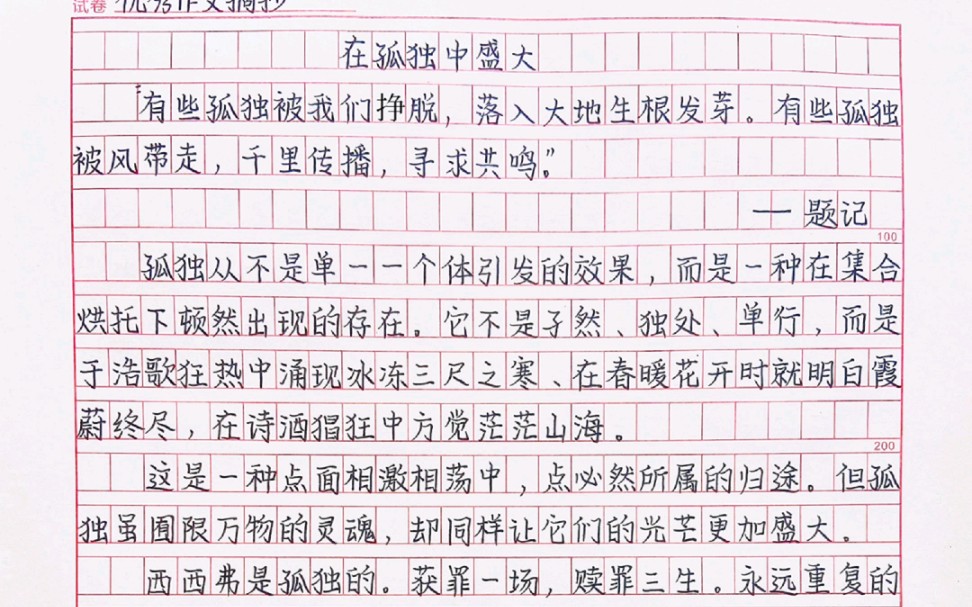 试卷 优秀作文摘抄
在孤独中盛大
“有些孤独被我们挣脱，落入大地生根发芽。有些孤独
被风带走，千里传播，寻求共鸣。”
— 题记
100
孤独从不是单一一个体引发的效果，而是一种在集合
烘托下顿然出现的存在。它不是孑然、独处、单行，而是
于浩歌狂热中涌现冰冻三尺之寒、在春暖花开时就明白霞
蔚终尽，在诗酒猖狂中方觉茫茫山海。
200
这是一种点面相激相荡中，点必然所属的归途。但孤
独虽囿限万物的灵魂，却同样让它们的光芒更加盛大。
西西弗是孤独的。获罪一场，赎罪三生。永远重复的